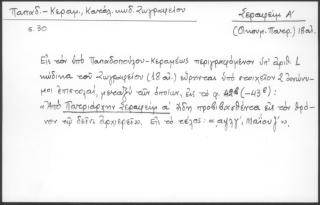 Παπαδ.-Κεραμ., Κατάλ. κωδ. Ζωγραφείου
Σεραφεὶμ Α′
σ. 30
(Οἰκουμ. Πατρ.) 18 αἰ.
Εἰς τὸν ὑπὸ Παπαδοπούλου-Κεραμέως περιγραφόμενον ὑπ' ἀριθ. 1
κώδικα τοῦ Ζωγραφείου (18 αἰ.) εὕρηνται ὑπὸ στοιχεῖον 2 ἀνώνυ-
μοι ἐπιστολαί, μεταξὺ τῶν ὁποίων, εἰς τὸ φ. 42β (-43β):
«Ἀπὸ Πατριάρχην Σεραφεὶμ α′ ἤδη προβιβασθέντα εἰς τὸν θρό-
νον τῷ δεῖνι ἀρχιερεῖ». Εἰς τὸ τέλος: «͵αψλγ′, Μαΐου ζ′».